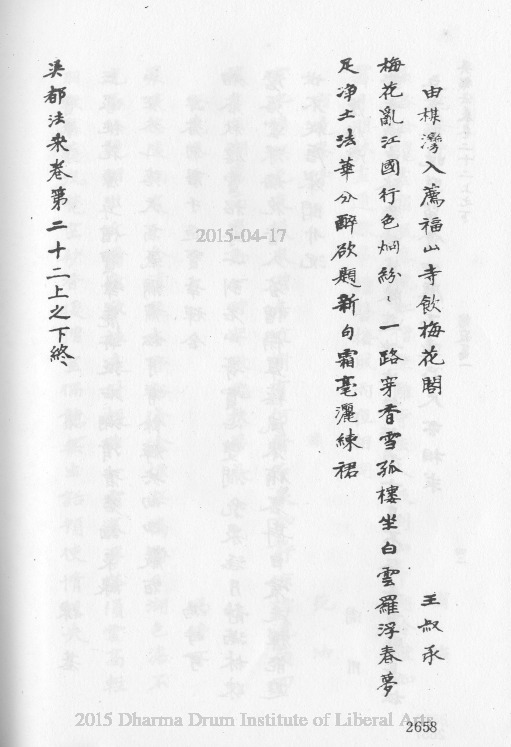 由楳灣入薦福山寺飲梅花閣 王叔承
梅花亂江國行色烟紛々一路穿香雪孤樓坐白雲羅浮春夢
足浄土法華分醉欲題新句霜毫灑練裙
吳都法乘卷第二十二上之下終
2015-04-17
2015 Dharma Drum Institute of Liberal Arts
2658